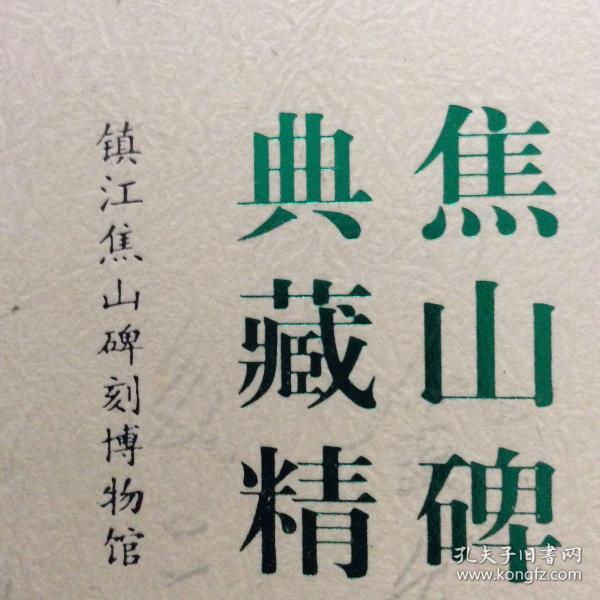 焦山碑
典藏精
镇江焦山碑刻博物馆
孔夫子旧書网
www.kongfz.com